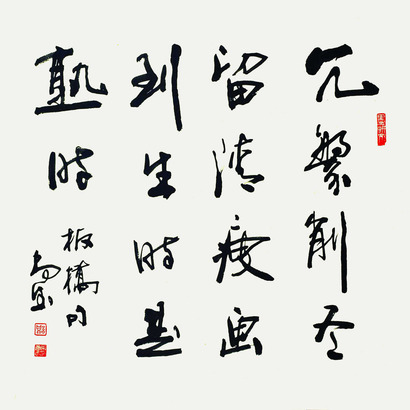 冗繁削尽
留清瘦画
到生時是
熟時
板橋句